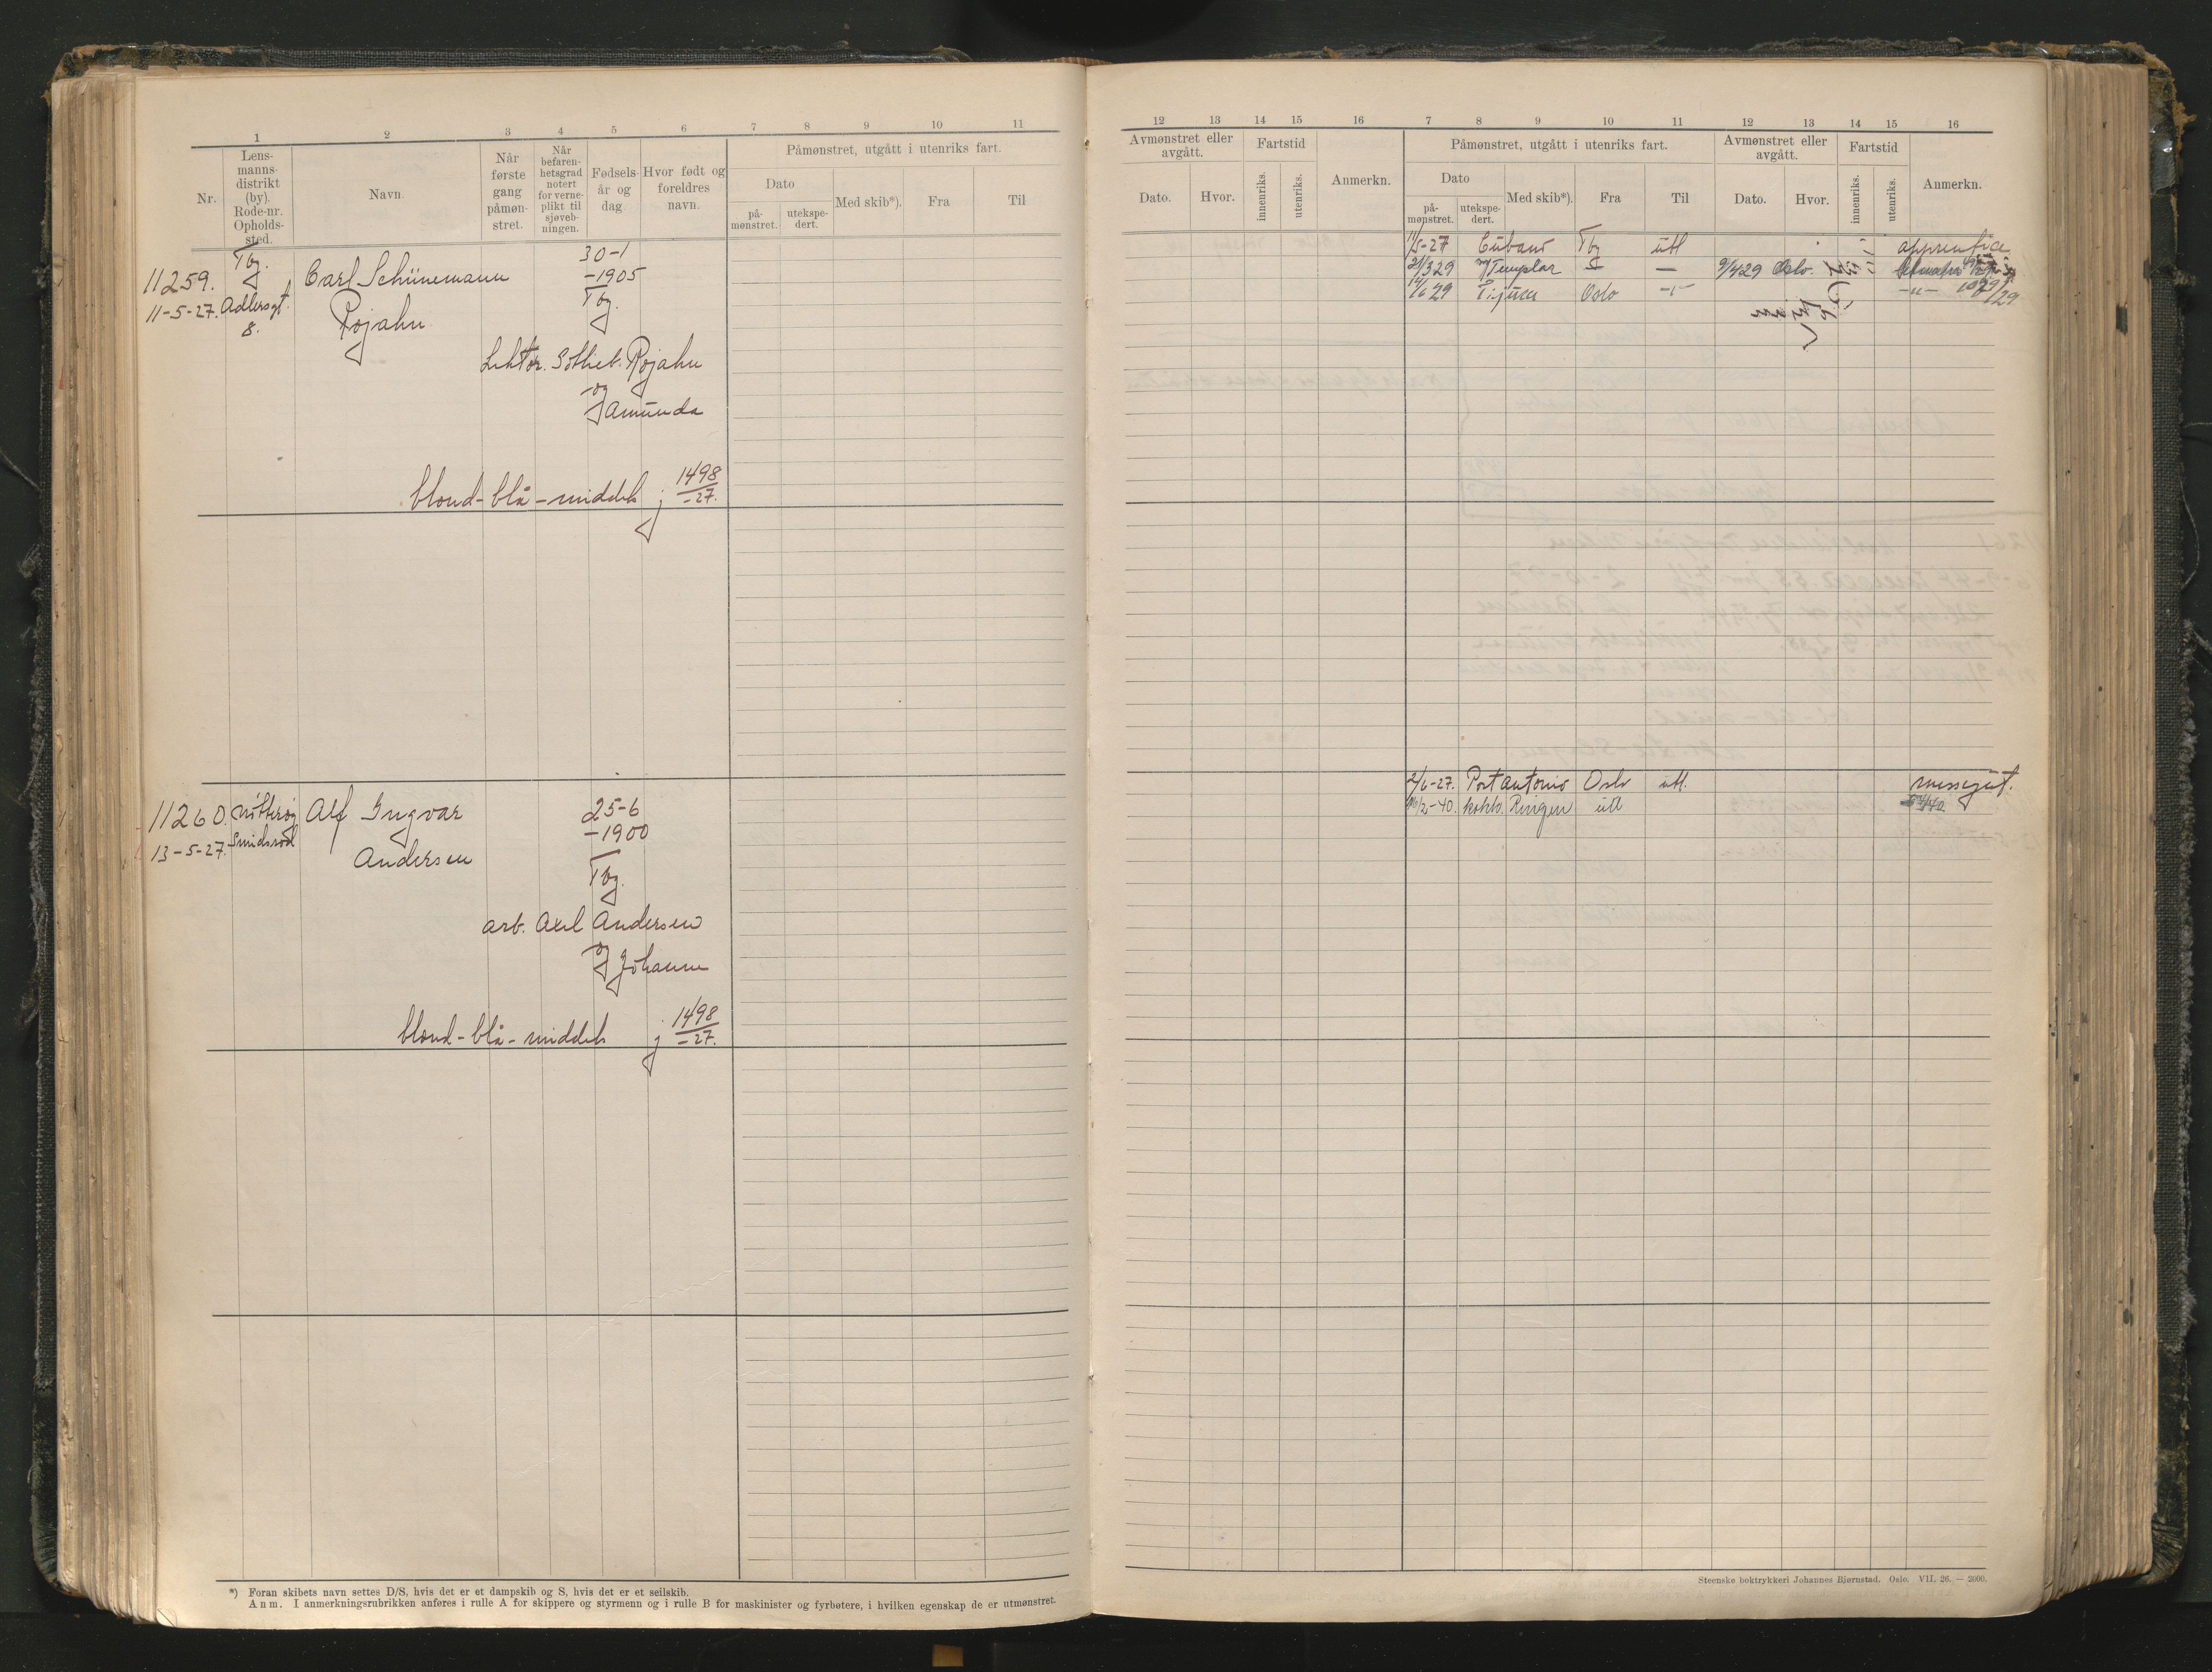 1 2 3 4 5 6 7 8 9 10 11
Nr.
Lens-
manns-
distrikt
(by).
Rode-nr.
Opholds-
sted.
Navn.
Når
første
gang
påmøn-
stret.
Når
befaren-
hetsgrad
notert
for verne-
plikt til
sjøveb-
ningen.
Fødsels-
år og
dag
Hvor født og
foreldres
navn.
Påmønstret, utgått i utenriks fart.
Dato
på-
mønstret.
utekspe-
dert.
Med skib*).
Fra
Til
11259.
11-5-27.
Tbg.
Adlersgt.
8.
Carl Schünemann
Rojahn
30-1
-1905
Tbg.
Lektor. Gotlieb. Rojahn
og
Jamunda
blond-blå-middels j 1498
-27.
11260.
13-5-27.
Nøtterøy
Smidsrød
Alf Ingvar
Andersen
25-6
-1900
Tbg.
arb. Axel Andersen
og
Johanne
blond-blå-middels j 1498
-27.
*) Foran skibets navn settes D/S, hvis det er et dampskib og S, hvis det er et seilskib.
Anm. I anmerkningsrubrikken anføres i rulle A for skippere og styrmenn og i rulle B for maskinister og fyrbøtere, i hvilken egenskap de er utmønstret.
12 13 14 15 16 7 8 9 10 11 12 13 14 15 16
Avmønstret eller
avgått.
Dato.
Hvor.
Fartstid
innenriks.
utenriks.
Anmerkn.
Påmønstret, utgått i utenriks fart.
Dato
på-
mønstret.
utekspe-
dert.
Med skib*).
Fra
Til
Avmønstret eller
avgått.
Dato.
Hvor.
Fartstid
innenriks.
utenriks.
Anmerkn.
11/5-27 Cubano Tbg utl apprentice
21/3 29 Templar — 9/4 29 Oslo.
14/6 29 Tijuca Oslo -"- -"-
2/6-27. Port Antonio Oslo utl. messegut.
/2-40. kokkb. Ringen utl
Steenske boktrykkeri Johannes Bjørnstad. Oslo. VII. 26. — 2000.